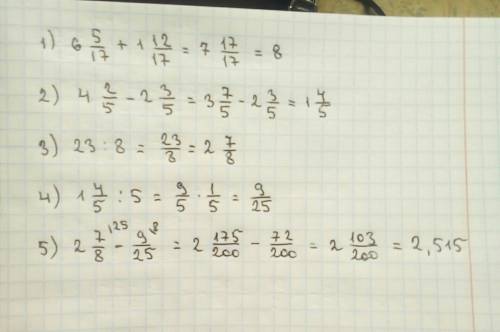 1) 6 5/17 + 1 12/17 = 7 17/17 = 8
2) 4 2/5 - 2 3/5 = 3 7/5 - 2 3/5 = 1 4/5
3) 23 : 8 = 23/8 = 2 7/8
4) 1 4/5 : 5 = 9/5 · 1/5 = 9/25
5) 2 7/8 \25 - 9/25 \8 = 2 175/200 - 72/200 = 2 103/200 = 2,515